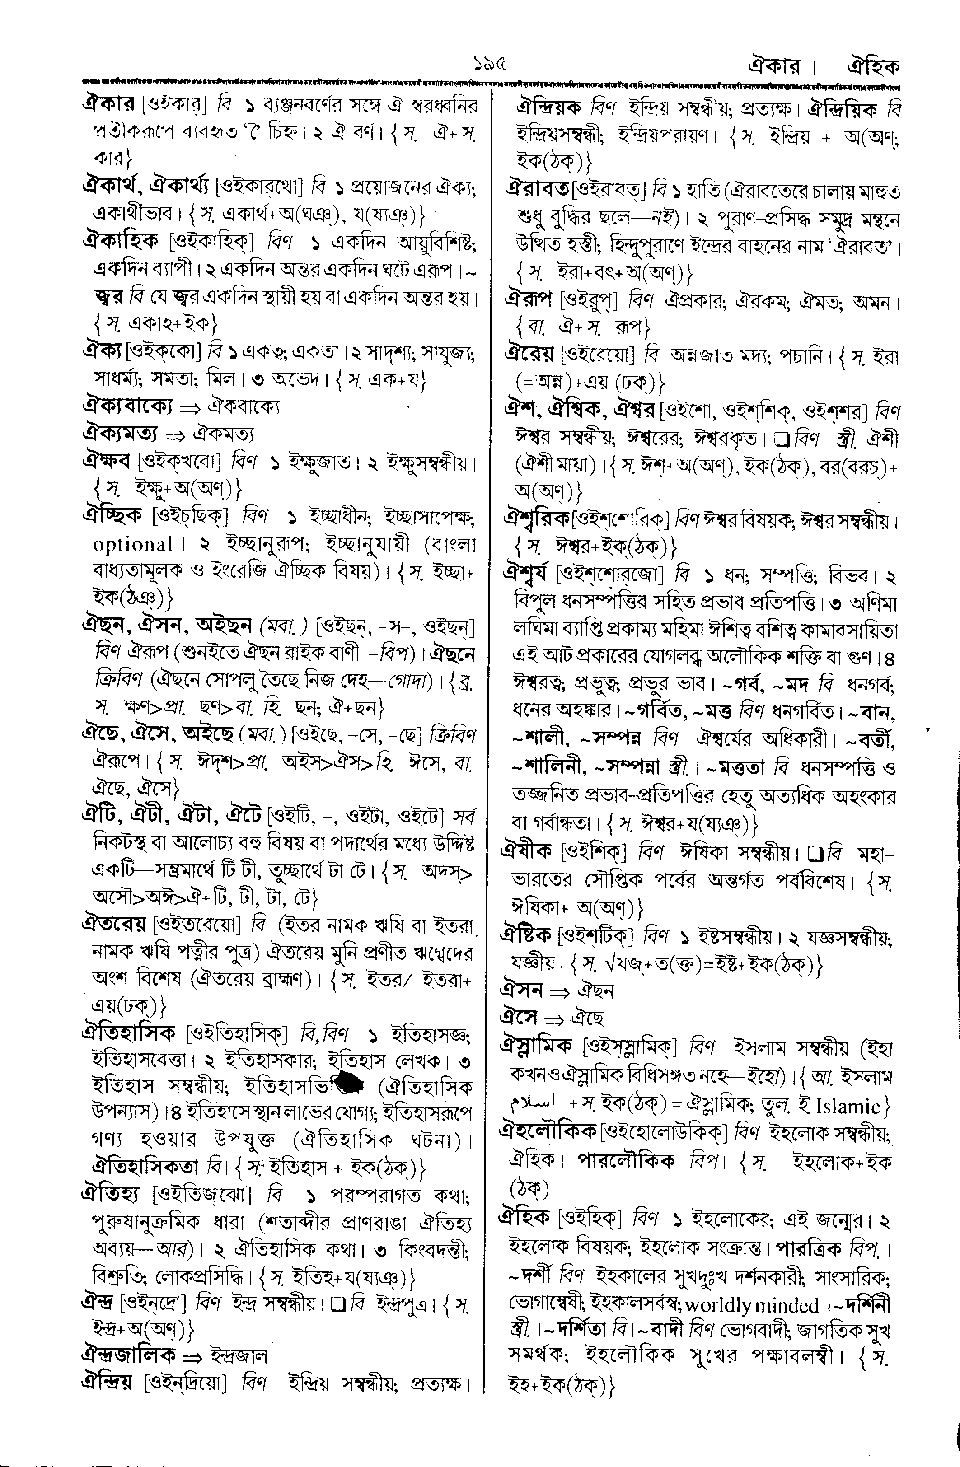 ১৯৫
ঐকার। ঐহিক
ঐকার [ওইকার্] বি ১ ব্যঞ্জনবর্ণের সঙ্গে ঐ স্বরধ্বনির
প্রতীকরূপে ব্যবহৃত ‘ৈ’ চিহ্ন। ২ ঐ বর্ণ। {স. ঐ+স.
কার}
ঐকার্থ, ঐকার্থ্য [ওইকারথো] বি ১ প্রয়োজনের ঐক্য;
একার্থীভাব। {স. একার্থ+অ(ঘঞ্), য(ষ্যঞ্)}
ঐকাহিক [ওইকাহিক্] বিণ ১ একদিন আয়ুবিশিষ্ট;
একদিন ব্যাপী। ২ একদিন অন্তর একদিন ঘটে এরূপ। ~
জ্বর বি যে জ্বর একদিন স্থায়ী হয় বা একদিন অন্তর হয়।
{স. একাহ+ইক}
ঐক্য [ওইক্‌কো] বি ১ একত্ব; একতা। ২ সাদৃশ্য; সাযুজ্য;
সাধর্ম্য; সমতা; মিল। ৩ অভেদ। {স. এক+য}
ঐক্যবাক্যে ⇒ ঐকবাক্যে
ঐক্যমত্য ⇒ ঐকমত্য
ঐক্ষব [ওইক্‌খবো] বিণ ১ ইক্ষুজাত। ২ ইক্ষুসম্বন্ধীয়।
{স. ইক্ষু+অ(অণ্)}
ঐচ্ছিক [ওইচ্‌ছিক্] বিণ ১ ইচ্ছাধীন; ইচ্ছাসাপেক্ষ;
optional। ২ ইচ্ছানুরূপ; ইচ্ছানুযায়ী (বাংলা
বাধ্যতামূলক ও ইংরেজি ঐচ্ছিক বিষয়)। {স. ইচ্ছা+
ইক(ঠঞ্)}
ঐছন, ঐসন, অইছন (মবা.) [ওইছন্, –স–, ওইছন্]
বিণ ঐরূপ (শুনইতে ঐছন রাইক বাণী –বিপ)। ঐছনে
ক্রিবিণ (ঐছনে সোপলু তৈছে নিজ দেহ—গোদা)। {ব্র.
স. ক্ষণ>প্রা. ছণ>বা. হি. ছন; ঐ+ছন}
ঐছে, ঐসে, অইছে (মবা.) [ওইছে, –সে, –ছে] ক্রিবিণ
ঐরূপে। {স. ঈদৃশ>প্রা. অইস>ঐস>হি. ঈসে, বা.
ঐছে, ঐসে}
ঐটি, ঐটী, ঐটা, ঐটে [ওইটি, –, ওইটা, ওইটে] সর্ব
নিকটস্থ বা আলোচ্য বহু বিষয় বা পদার্থের মধ্যে উদ্দিষ্ট
একটি—সম্ভ্রমার্থে টি টী, তুচ্ছার্থে টা টে। {স. অদস্>
অসৌ>অঈ>ঐ+টি, টী, টা, টে}
ঐতরেয় [ওইতরেয়ো] বি (ইতর নামক ঋষি বা ইতরা
নামক ঋষি পত্নীর পুত্র) ঐতরেয় মুনি প্রণীত ঋগ্বেদের
অংশ বিশেষ (ঐতরেয় ব্রাহ্মণ)। {স. ইতর/ ইতরা+
এয়(ঢক্)}
ঐতিহাসিক [ওইতিহাসিক্] বি,বিণ ১ ইতিহাসজ্ঞ;
ইতিহাসবেত্তা। ২ ইতিহাসকার; ইতিহাস লেখক। ৩
ইতিহাস সম্বন্ধীয়; (ঐতিহাসিক
উপন্যাস)। ৪ ইতিহাসে স্থান লাভের যোগ্য; ইতিহাসরূপে
গণ্য হওয়ার উপযুক্ত (ঐতিহাসিক ঘটনা)।
ঐতিহাসিকতা বি। {স. ইতিহাস + ইক(ঠক্)}
ঐতিহ্য [ওইতিজ্‌ঝো] বি ১ পরম্পরাগত কথা;
পুরুষানুক্রমিক ধারা (শতাব্দীর প্রাণরাঙা ঐতিহ্য
অব্যয়—আর)। ২ ঐতিহাসিক কথা। ৩ কিংবদন্তী;
বিশ্রুতি; লোকপ্রসিদ্ধি। {স. ইতিহ+য(ষ্যঞ্)}
ঐন্দ্র [ওইন্‌দ্রো] বিণ ইন্দ্র সম্বন্ধীয়। ❏ বি ইন্দ্রপুত্র। {স.
ইন্দ্র+অ(অণ্)}
ঐন্দ্রজালিক ⇒ ইন্দ্রজাল
ঐন্দ্রিয় [ওইন্‌দ্রিয়ো] বিণ ইন্দ্রিয় সম্বন্ধীয়; প্রত্যক্ষ।
ঐন্দ্রিয়ক বিণ ইন্দ্রিয় সম্বন্ধীয়; প্রত্যক্ষ। ঐন্দ্রিয়িক বি
ইন্দ্রিয়সম্বন্ধী; ইন্দ্রিয়পরায়ণ। {স. ইন্দ্রিয় + অ(অণ্;
ইক(ঠক্)}
ঐরাবত[ওইরাবত্] বি ১ হাতি (ঐরাবতেরে চালায় মাহুত
শুধু বুদ্ধির ছলে—নই)। ২ পুরাণ–প্রসিদ্ধ সমুদ্র মন্থনে
উত্থিত হস্তী; হিন্দুপুরাণে ইন্দ্রের বাহনের নাম ‘ঐরাবত’।
{স. ইরা+বৎ+অ(অণ্)}
ঐরূপ [ওইরুপ্] বিণ ঐপ্রকার; ঐরকম; ঐমত; অমন।
{বা. ঐ+স. রূপ}
ঐরেয় [ওইরেয়ো] বি অন্নজাত মদ্য; পচানি। {স. ইরা
(=অন্ন)+এয় (ঢক্)}
ঐশ, ঐশ্বিক, ঐশ্বর [ওইশো, ওইশ্‌শিক্, ওইশ্‌শর] বিণ
ঈশ্বর সম্বন্ধীয়; ঈশ্বরের; ঈশ্বরকৃত। ❏ বিণ স্ত্রী. ঐশী
(ঐশী মায়া)। {স. ঈশ্+অ(অণ্), ইক(ঠক্), বর(বরচ্)+
অ(অণ্)}
ঐশ্বরিক[ওইশ্‌শোরিক্] বিণ ঈশ্বর বিষয়ক; ঈশ্বর সম্বন্ধীয়।
{স. ঈশ্বর+ইক্(ঠক্)}
ঐশ্বর্য [ওইশ্‌শোরজো] বি ১ ধন; সম্পত্তি; বিভব। ২
বিপুল ধনসম্পত্তির সহিত প্রভাব প্রতিপত্তি। ৩ অণিমা
লঘিমা ব্যাপ্তি প্রকাম্য মহিমা ঈশিত্ব বশিত্ব কামাবসায়িতা
এই আট প্রকারের যোগলব্ধ অলৌকিক শক্তি বা গুণ। ৪
ঈশ্বরত্ব; প্রভুত্ব; প্রভুর ভাব। ~গর্ব, ~মদ বি ধনগর্ব;
ধনের অহঙ্কার। ~গর্বিত, ~মত্ত বিণ ধনগর্বিত। ~বান,
~শালী, ~সম্পন্ন বিণ ঐশ্বর্যের অধিকারী। ~বতী,
~শালিনী, ~সম্পন্না স্ত্রী.। ~মত্ততা বি ধনসম্পত্তি ও
তজ্জনিত প্রভাব–প্রতিপত্তির হেতু অত্যধিক অহংকার
বা গর্বান্ধতা। {স. ঈশ্বর+য(ষ্যঞ্)}
ঐষীক [ওইশিক্] বিণ ঈষিকা সম্বন্ধীয়। ❏বি মহা–
ভারতের সৌপ্তিক পর্বের অন্তর্গত পর্ববিশেষ। {স.
ঈষিকা+ অ(অণ্)}
ঐষ্টিক [ওইশ্‌টিক্] বিণ ১ ইষ্টসম্বন্ধীয়। ২ যজ্ঞসম্বন্ধীয়;
যজ্ঞীয়। {স. √যজ্+ত(ক্ত)=ইষ্ট+ইক(ঠক্)}
ঐসন ⇒ ঐছন
ঐসে ⇒ ঐছে
ঐস্লামিক [ওইসস্লামিক্] বিণ ইসলাম সম্বন্ধীয় (ইহা
কখনও ঐস্লামিক বিধিসঙ্গত নহে—ইহো)। {আ. ইসলাম
اسلام +স. ইক(ঠক্) = ঐস্লামিক; তুল. ই Islamic}
ঐহলৌকিক [ওইহোলোউকিক্] বিণ ইহলোক সম্বন্ধীয়;
ঐহিক। পারলৌকিক বিপ। {স. ইহলোক+ইক
(ঠক্)
ঐহিক [ওইহিক্] বিণ ১ ইহলোকের; এই জন্মের। ২
ইহলোক বিষয়ক; ইহলোক সংক্রান্ত। পারত্রিক বিপ.।
~দর্শী বিণ ইহকালের সুখদুঃখ দর্শনকারী; সাংসারিক;
ভোগান্বেষী; ইহকালসর্বস্ব; worldly minded। ~দর্শিনী
স্ত্রী.। ~দর্শিতা বি। ~বাদী বিণ ভোগবাদী; জাগতিক সুখ
সমর্থক; ইহলৌকিক সুখের পক্ষাবলম্বী। {স.
ইহ+ইক(ঠক্)}